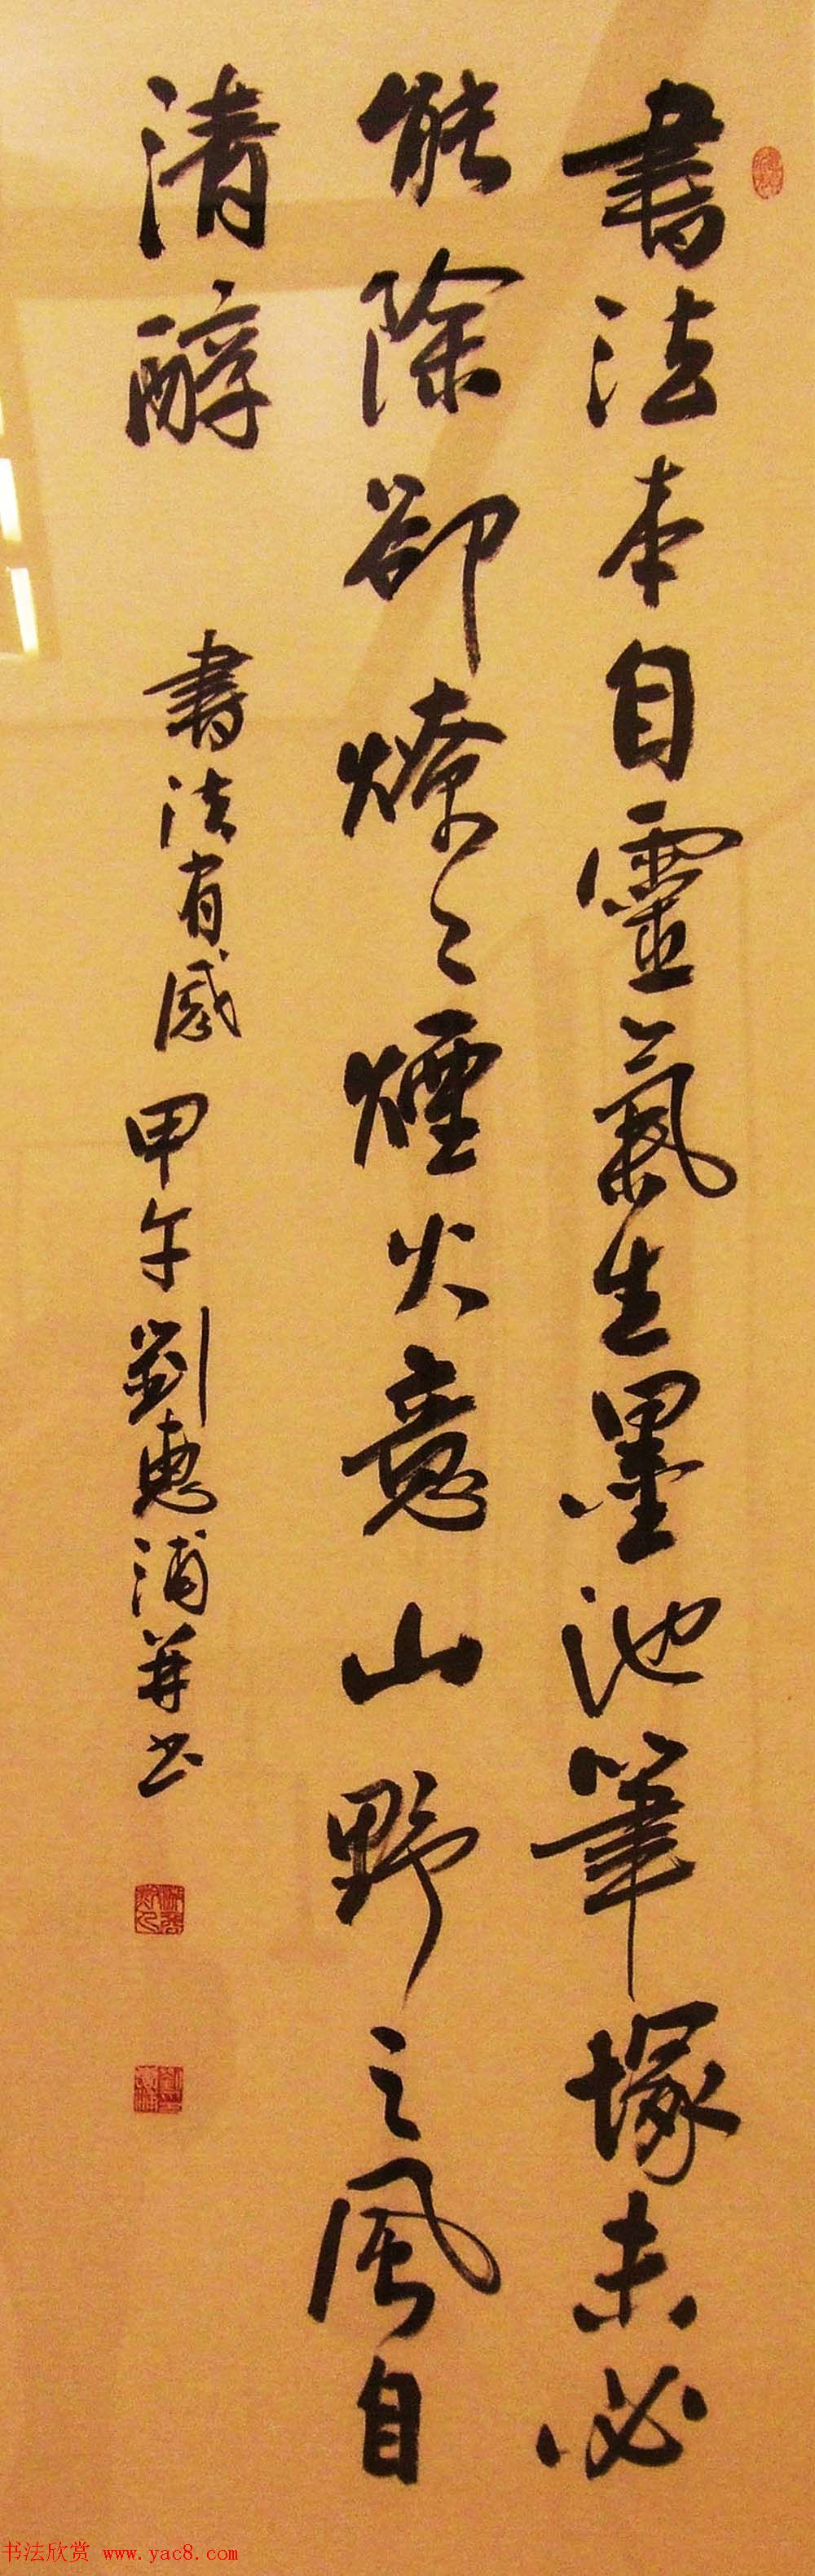 書法本自靈氣生墨池筆塚未必
能除卻燎〻煙火意山野之風自
清醇
書法有感 甲午劉惠浦并书
书法欣赏 www.yac8.com